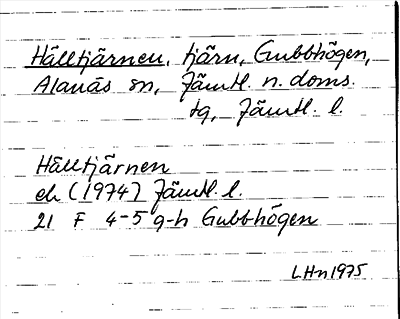 Hälltjärnen, tjärn, Gubbhögen,
Alanäs sn, Jämtl. n. doms.
tg, Jämtl. l.
Hälltjärnen
ek (1974) Jämtl. l.
21 F 4-5 g-h Gubbhögen
LHn 1975